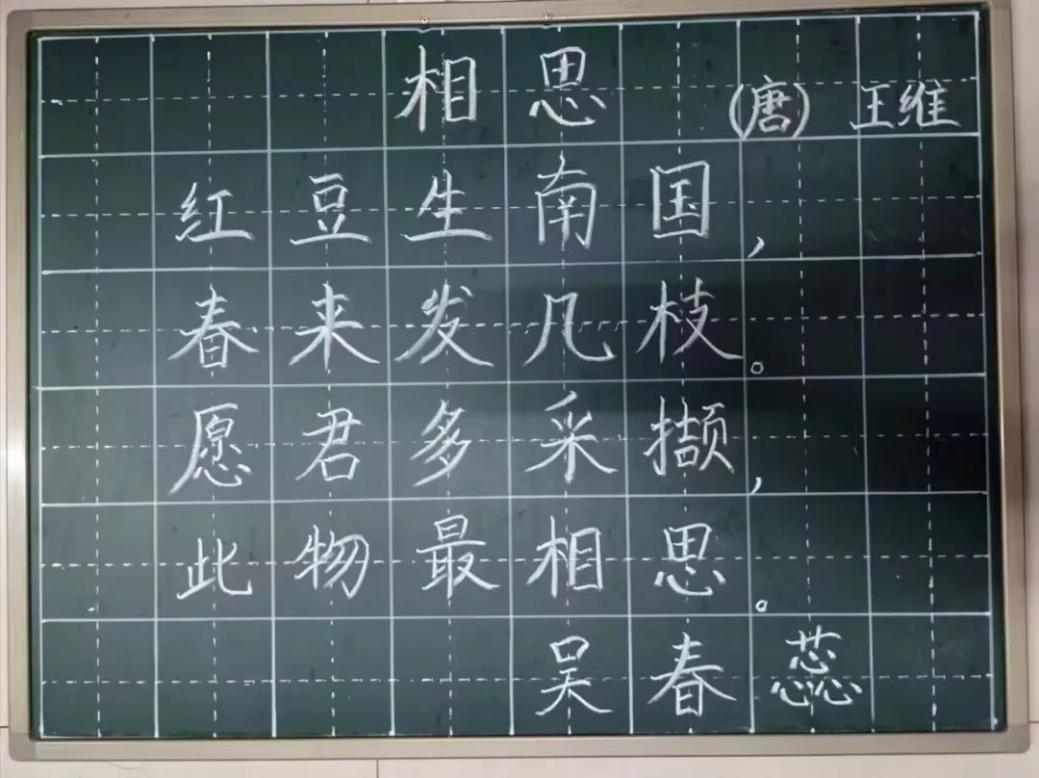 相思 (唐) 王维
红豆生南国，
春来发几枝。
愿君多采撷，
此物最相思。
吴春蕊